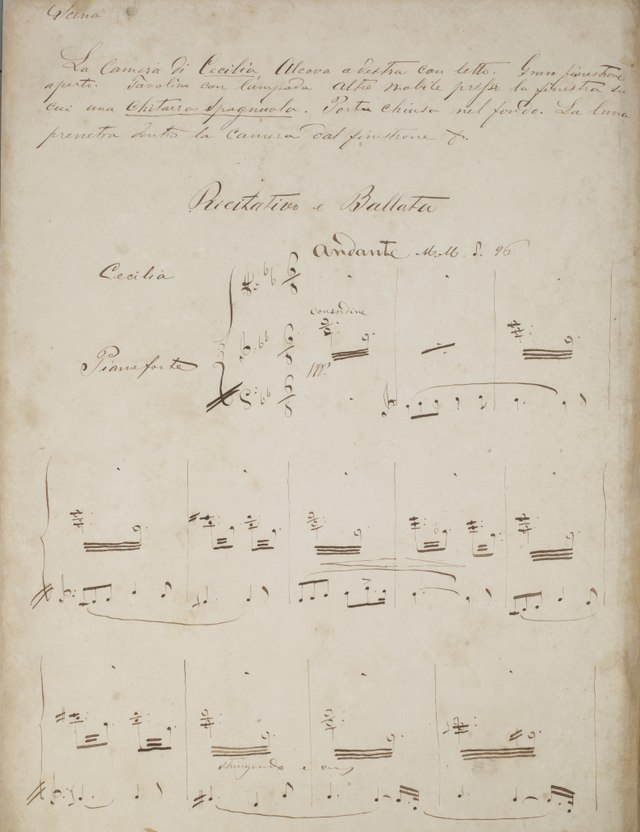 Scena
La Camera di Cecilia. Alcova a destra con letto. Gran finestrone
aperto. Tavolino con lampada altro mobile presso la finestra su
cui una Chitarra Spagnuola. Porta chiusa nel fondo. La luna
penetra dentro la camera dal finestrone
Recitativo e Ballata
Andante M.M. 96
Cecilia
con sordine
Pianoforte
ppp.
stringendo e cres